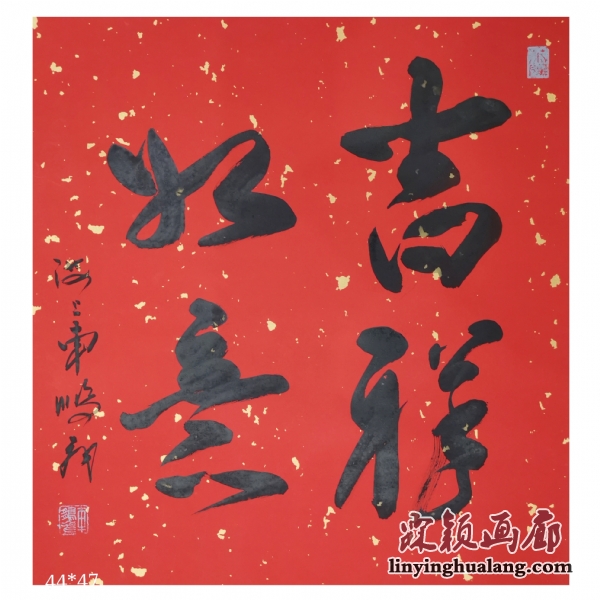 吉祥
如意
44*47
霖颖画廊
linyinghualang.com